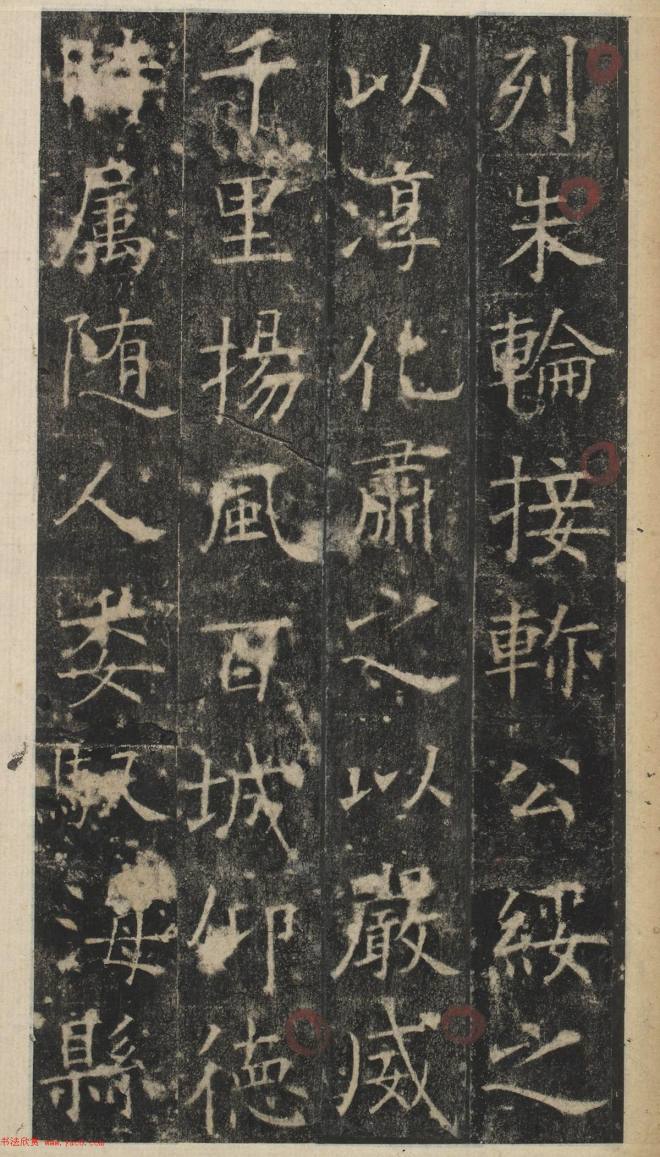 列朱輪接軫公綏之
以淳化肅之以嚴威
千里揚風百城仰德
時属随人委馭海縣
书法欣赏 www.yac8.com